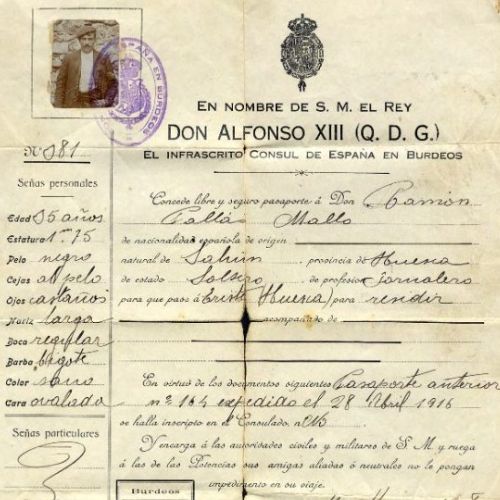 ESPAÑA EN BURDEOS
EN NOMBRE DE S. M. EL REY
DON ALFONSO XIII (Q. D. G.)
EL INFRASCRITO CONSUL DE ESPAÑA EN BURDEOS
Nº 981
Señas personales
Edad 35 años
Estatura 1 m 75
Pelo negro
Cejas al pelo
Ojos castaños
Nariz larga
Boca regular
Barba bigote
Color sano
Cara ovalado
Señas particulares
Concede libre y seguro pasaporte á Don Ramón
Pallás Mallo
de nacionalidad española de origen
natural de Sahun provincia de Huesca
de estado Soltero de profesión Jornalero
para que pase á Eriste (Huesca) para residir
acompañado de
En virtud de los documentos siguientes Pasaporte anterior
nº 164 expedido el 28 Abril 1916
se halla inscripto en el Consulado, nº
Y encarga á las autoridades civiles y militares de S. M. y ruega
á las de las Potencias sus amigas aliadas ó neutrales no le pongan
impedimento en su viaje.
Burdeos